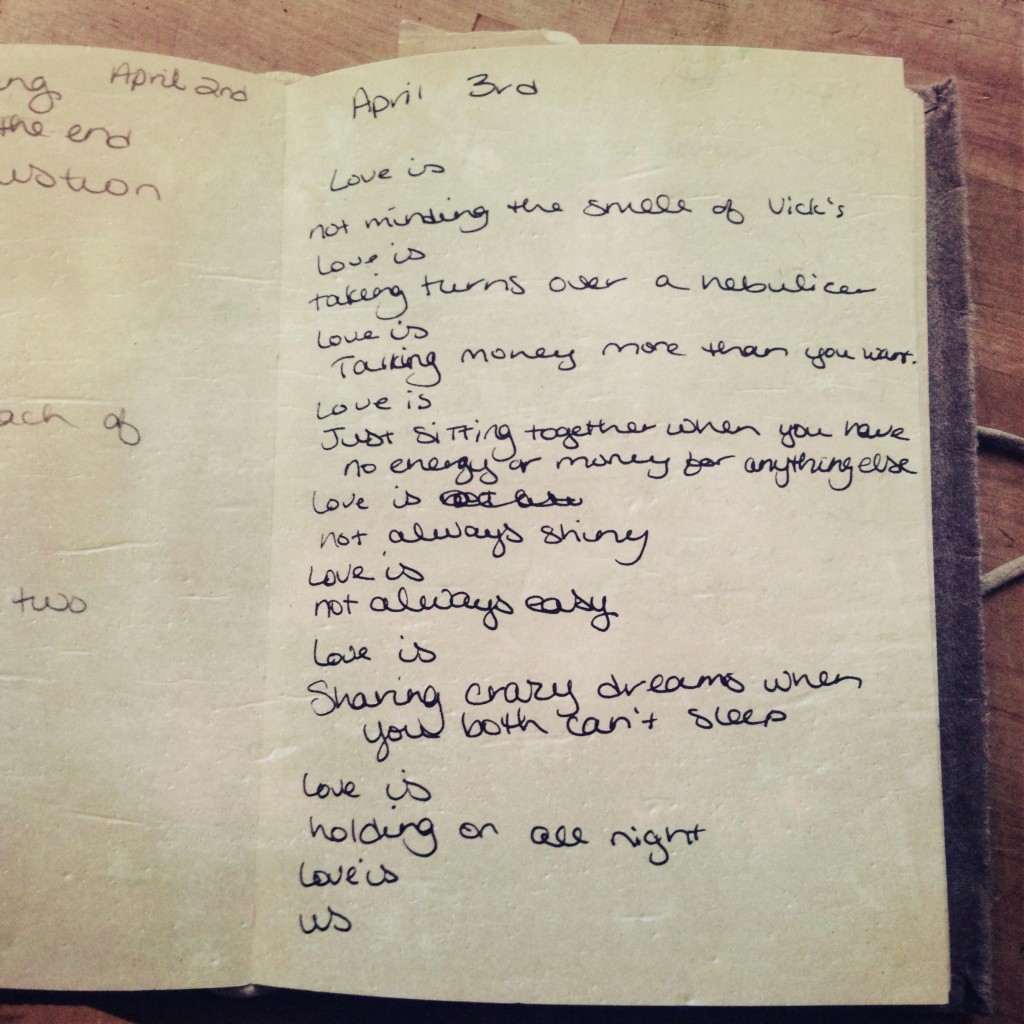 April 2nd
the end
two
April 3rd
Love is
not minding the smell of Vick's
Love is
taking turns over a nebulicer
Love is
Talking money more than you want.
Love is
Just sitting together when you have
no energy or money for anything else
Love is
not always shiny
Love is
not always easy
Love is
Sharing crazy dreams when
you both can't sleep
Love is
holding on all night
Love is
us